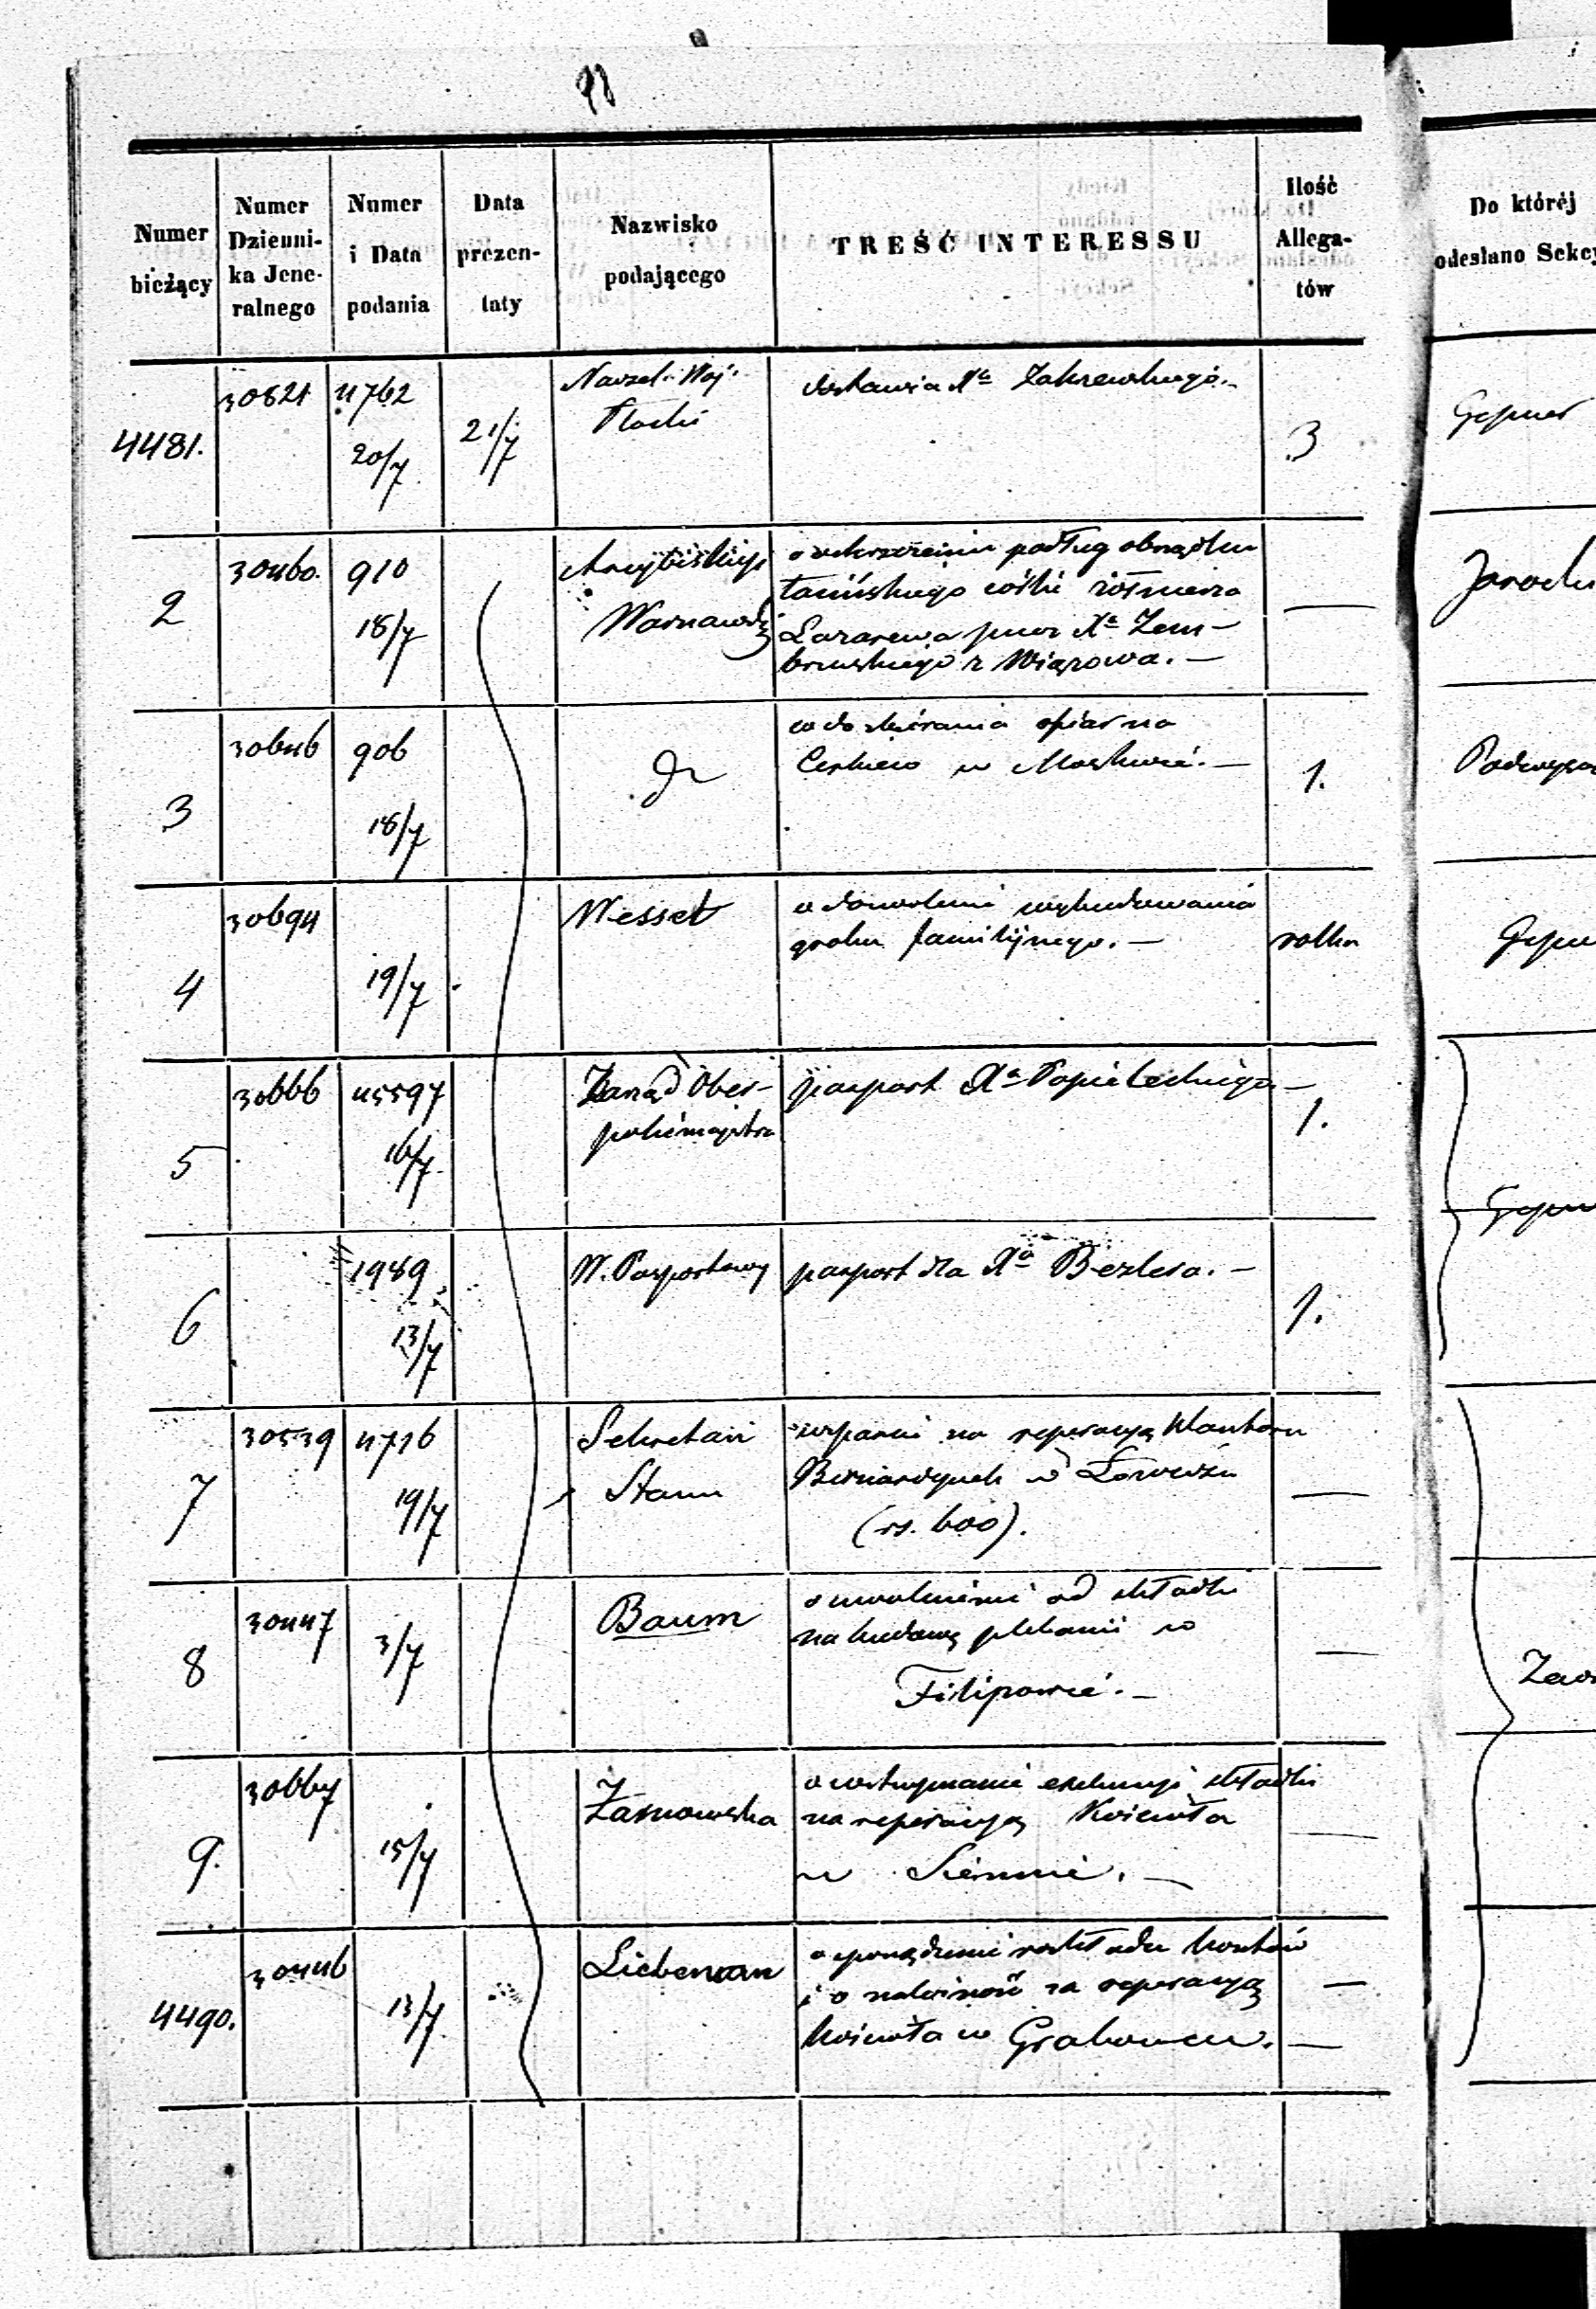 98
Numer bieżący
Numer Dziennika Jeneralnego
Numer i Data podania
Data prezentaty
Nazwisko podającego
TREŚĆ INTERESSU
Ilość Allegatów
Do której odesłano Sekcy
4481. 30621 4762 20/7 21/7 Naczel. Woj. Płocki
dostawia Xa Zakrzewskiego.
3 Gepner
2 30460. 910 18/7 Arcybiskup Warszawski
o ochrzczeniu podług obrządku
łacińskiego córki żołnierza
Lazarewa przez Xa Zem-
brzuskiego z Wiązowa. —
—
3 30646 906 18/7 Dr
w do zbierania ofiar na
Cerkiew w Moskwie. —
1.
4 30694 19/7 Wessel
o dozwolenie wybudowania
grobu familijnego. —
5 30666 45597 16/7 Zarząd Ober-
policmajstra
paszport Xa Popieleckiego —
1.
6 1989 13/7 W. Paszportowy
paszport dla Xa Bezlera. —
1.
7 30539 4716 19/7 Sekretarz
Stanu
wsparcie na reperacyą Klasztoru
Bernardynek w Łowiczu
(rs. 600).
—
8 30447 3/7 Baum
o uwolnienie od składki
na budowę plebanii w
Filipowie. —
—
9. 30667 15/7 Żarnowska
o wstrzymanie exekucyi składki
na reperacyą Kościoła
w Siennie. —
—
4490. 30446 13/7 Lieberman
o sporządzenie rozkładu kosztów
i o należność za reperacyą
kościoła w Grabowcu. —
—